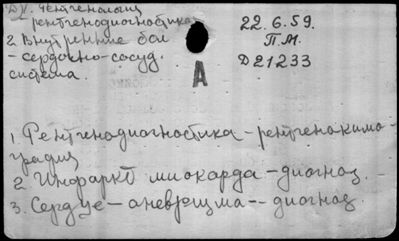 IV. Рентгенология
рентгенодиагностика
2 Внутренние бол
- сердечно-сосуд.
система.
22.6.59.
П.М.
D21233
A
1. Рентгенодиагностика - рентгенокимо-
графия
2. Инфаркт миокарда - диагноз.
3. Сердце - аневризма - диагноз